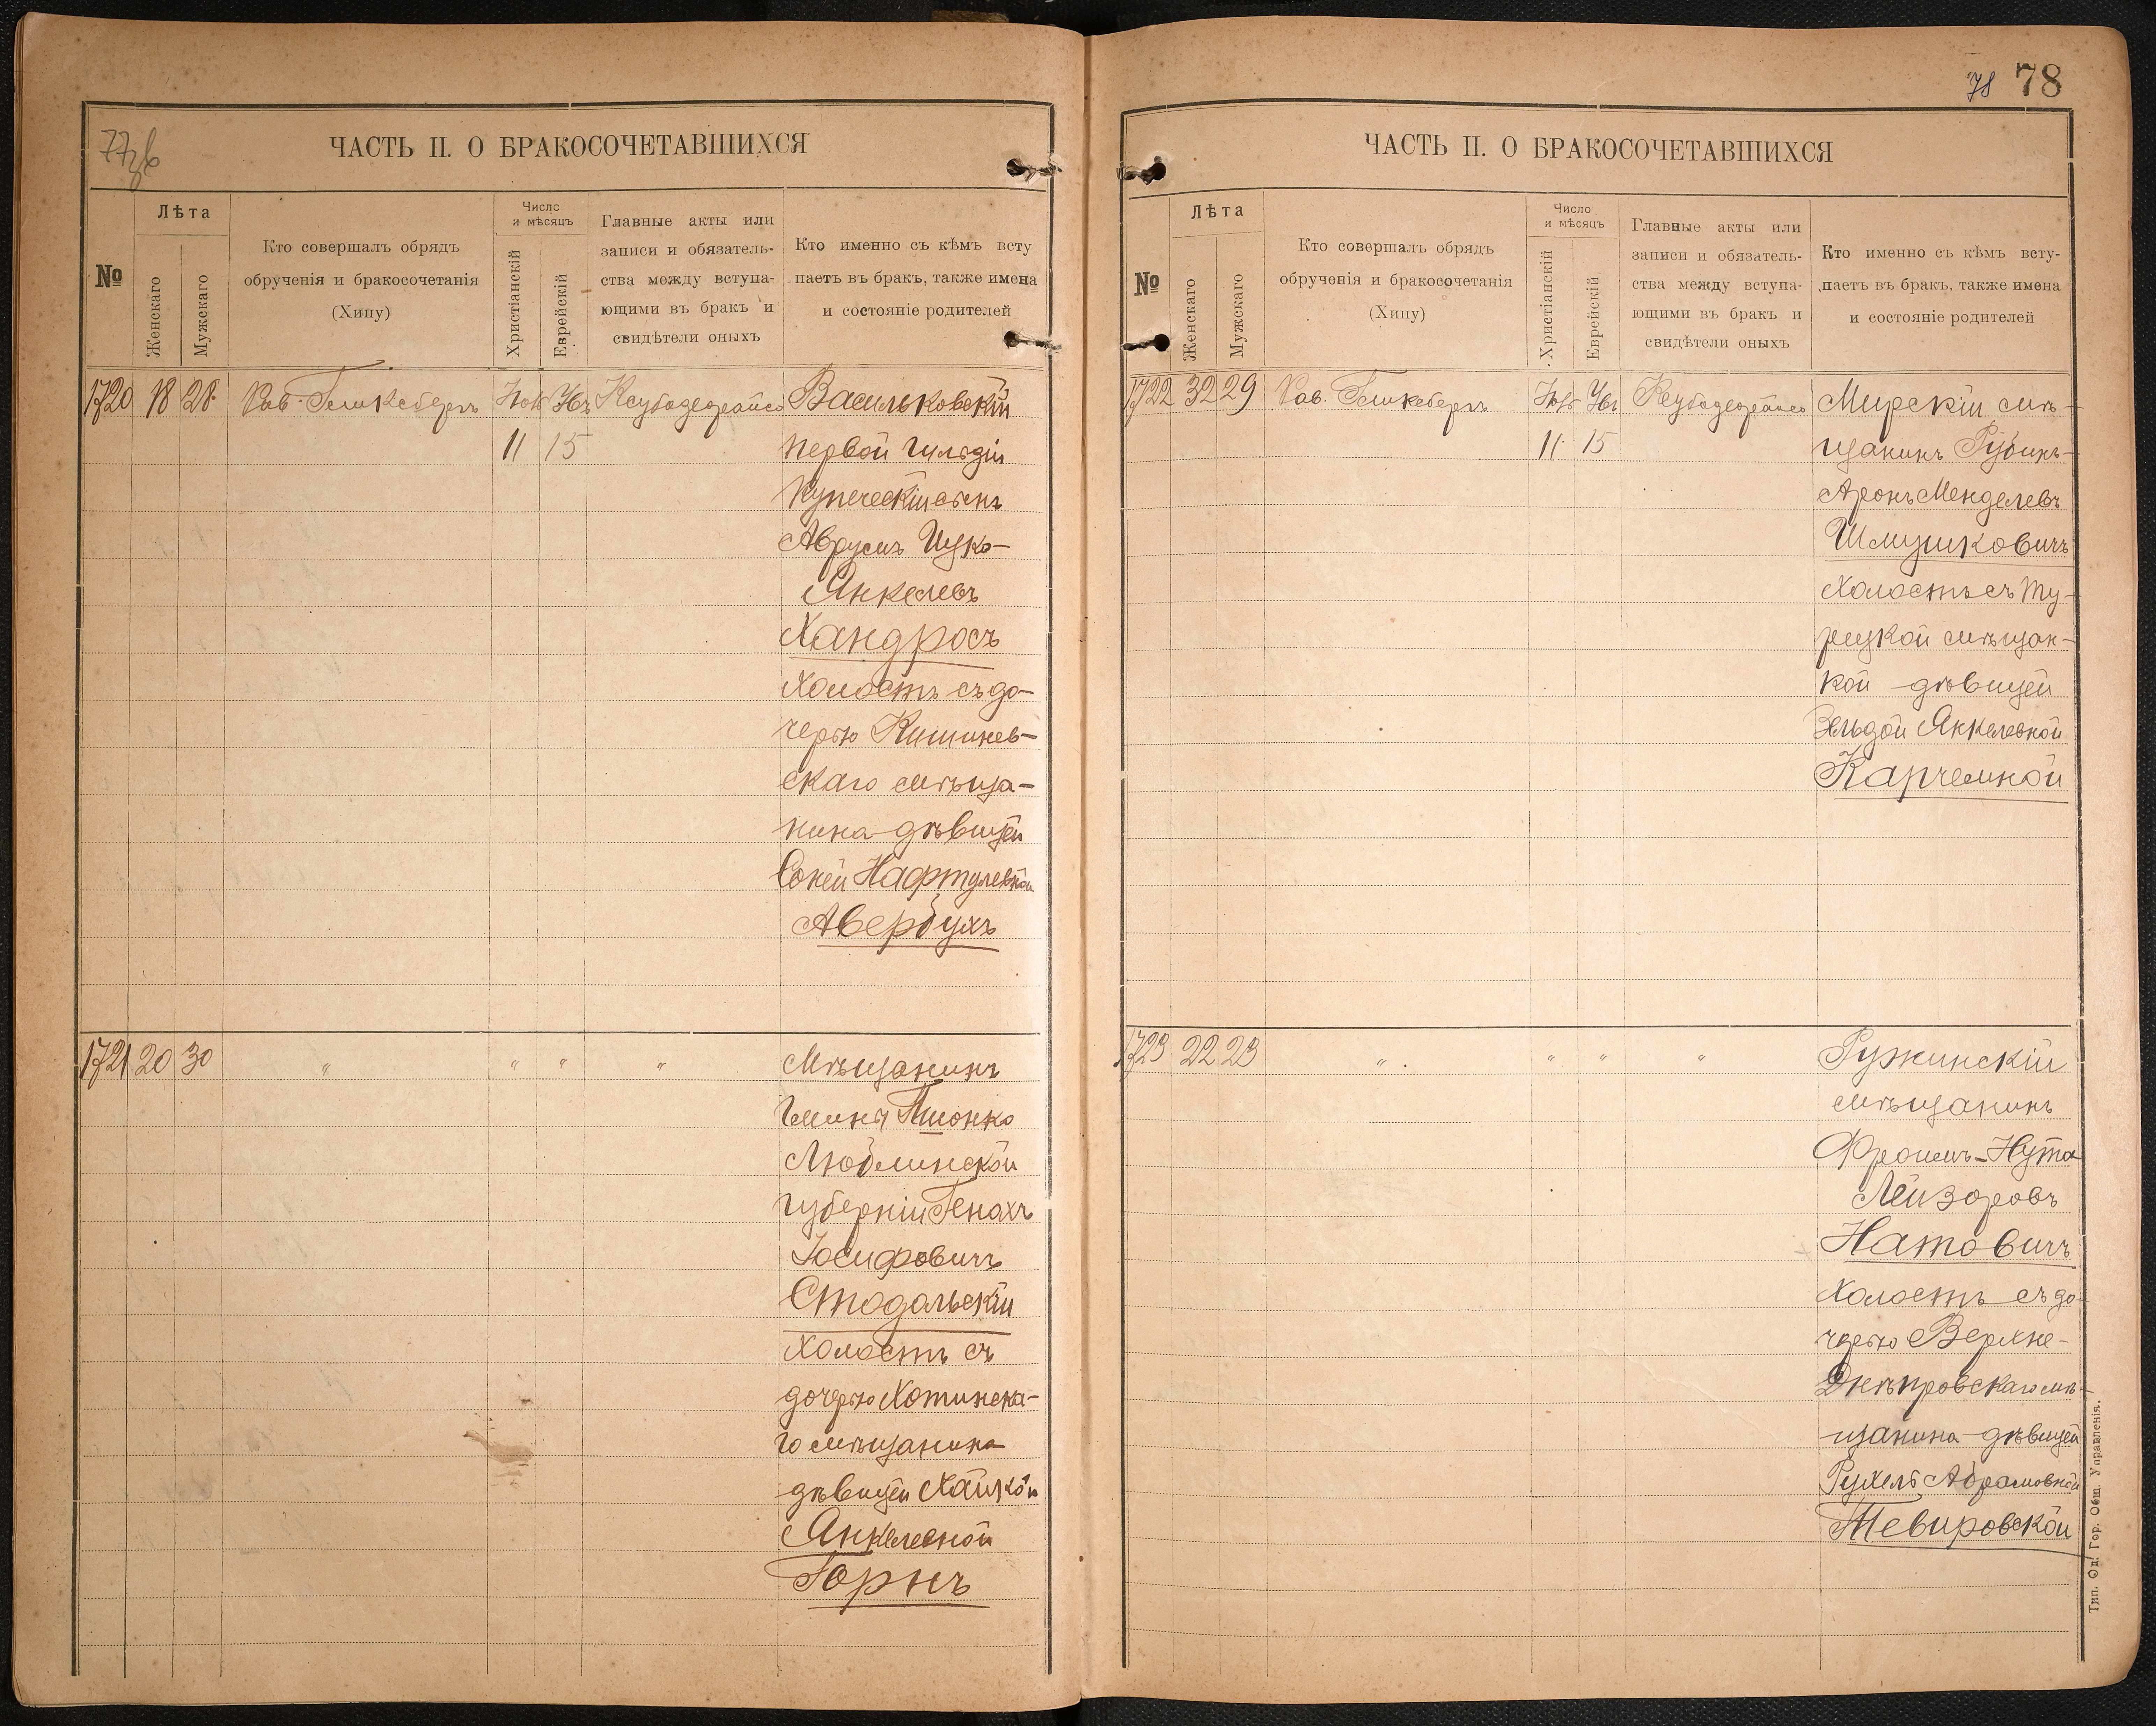 77об
ЧАСТЬ II. О БРАКОСОЧЕТАВШИХСЯ
№
Лѣта
Женскаго
Мужскаго
Кто совершалъ обрядъ
обрученія и бракосочетанія
(Хипу)
Число
и мѣсяцъ
Христіанскій
Еврейскій
Главные акты или
записи и обязатель-
ства между вступа-
ющими въ бракъ и
свидѣтели оныхъ
Кто именно съ кѣмъ всту
паетъ въ бракъ, также имена
и состояніе родителей
1720 18 28 Рав.
11 15
Васильковскій
первой гильдіи
купеческій сынъ
Аврумъ Ицко-
Янкелевъ
Хандросъ
холостъ съ до-
черью Кишинев-
скаго мѣща-
нина дѣвицей
Соней Нафтулевной
Авербухъ
1721 20 30 " " " "
Мѣщанинъ
Гмины Пионко
Люблинской
губерніи Генахъ
Іосифовичъ
Стодольскій
холостъ съ
дочерью Хотинска-
го мѣщанина
дѣвицей Хайкой
Янкелевной
Горнъ
78 78
ЧАСТЬ II. О БРАКОСОЧЕТАВШИХСЯ
№
Лѣта
Женскаго
Мужскаго
Кто совершалъ обрядъ
обрученія и бракосочетанія
(Хипу)
Число
и мѣсяцъ
Христіанскій
Еврейскій
Главные акты или
записи и обязатель-
ства между вступа-
ющими въ бракъ и
свидѣтели оныхъ
Кто именно съ кѣмъ всту-
паетъ въ бракъ, также имена
и состояніе родителей
1722 32 29 Рав.
11 15
Мирскій мѣ-
щанинъ Рубинъ-
Аронъ Менделевъ
Шмушковичъ
холостъ съ Ту-
рецкой мѣщан-
кой дѣвицей
Зельдой Янкелевной
Карчемной
1723 22 23 " " " "
Ружинскій
мѣщанинъ
Фроимъ-Нута
Лейзоровъ
Натовичъ
холостъ съ до-
черью Верхне-
Днѣпровскаго мѣ-
щанина дѣвицей
Рухель Абрамовной
Тевировской
Тип. Од. Гор. Общ. Управленія.